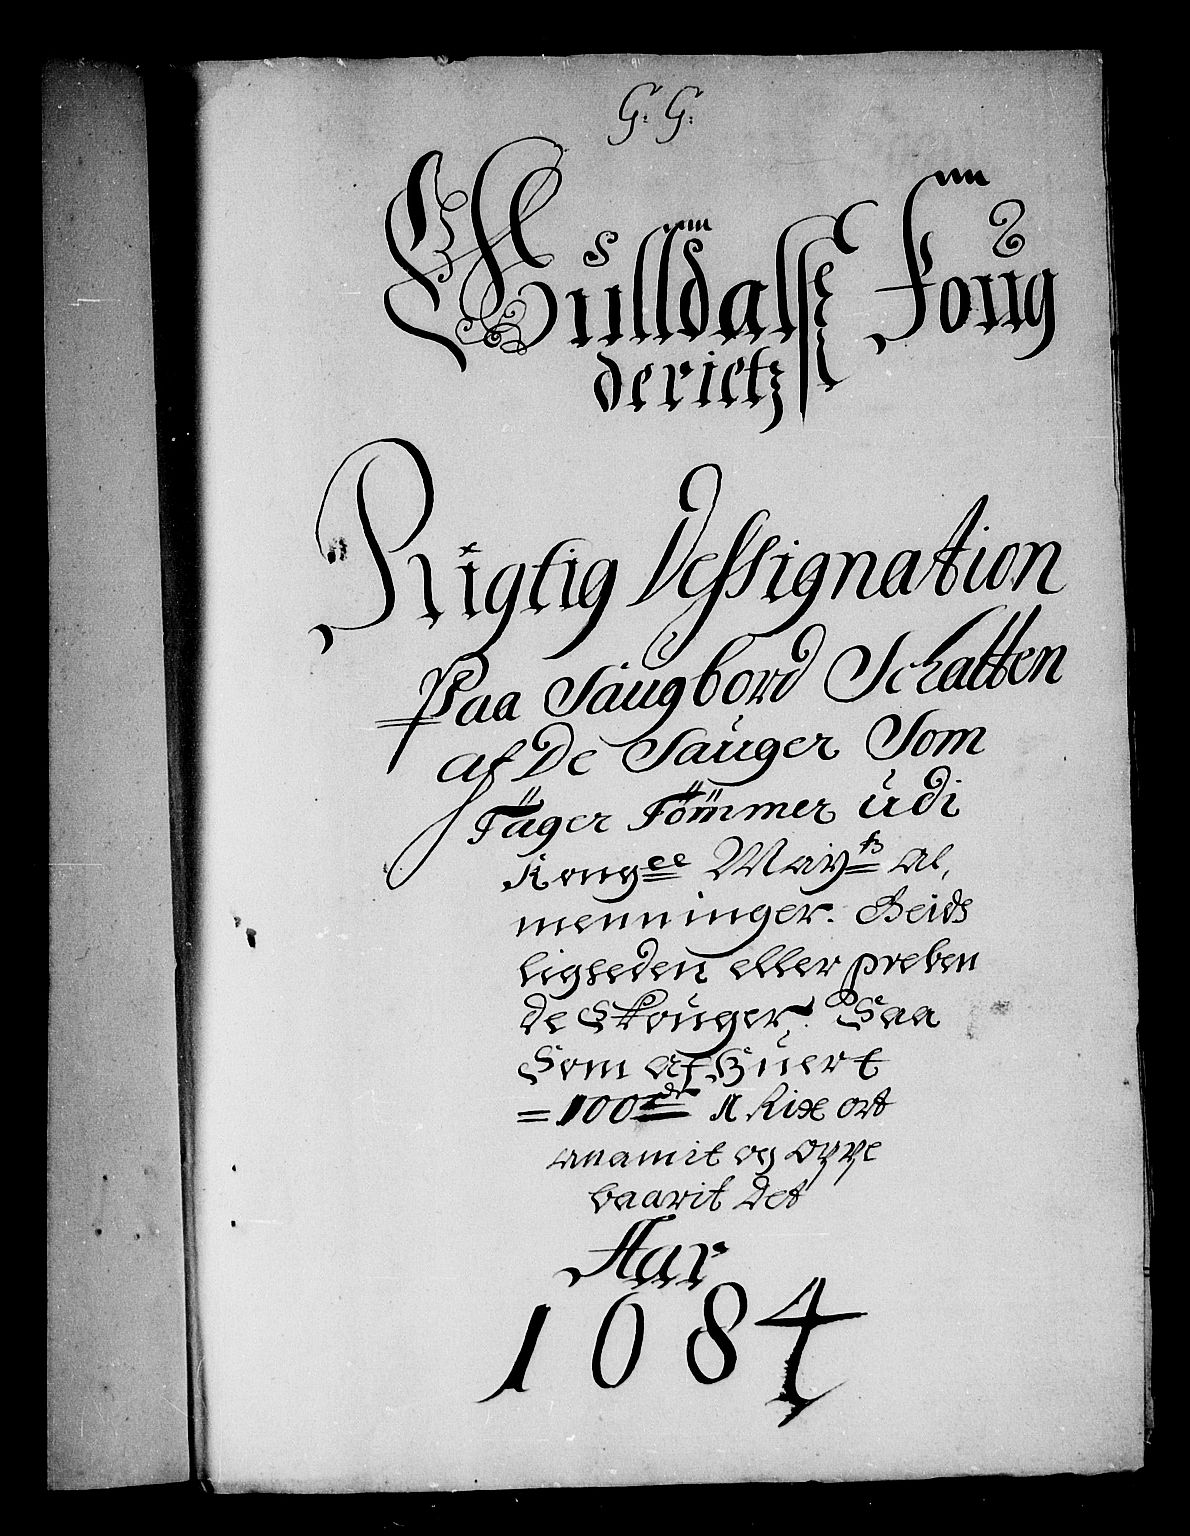 G: G:
Gulldalsße Foug
derietz
Rigtig Dessignation
Paa Saugbord Schatten
af De Sauger Som
Tager Tömmer udi
Kong: ee Mayts Al,
menninger. Geids
ligheden eller preben
de Skouger. Saa
Som af Huert
= 100dr 1 Rix ort
anamit og Oppe
baarit det
Aar
1684